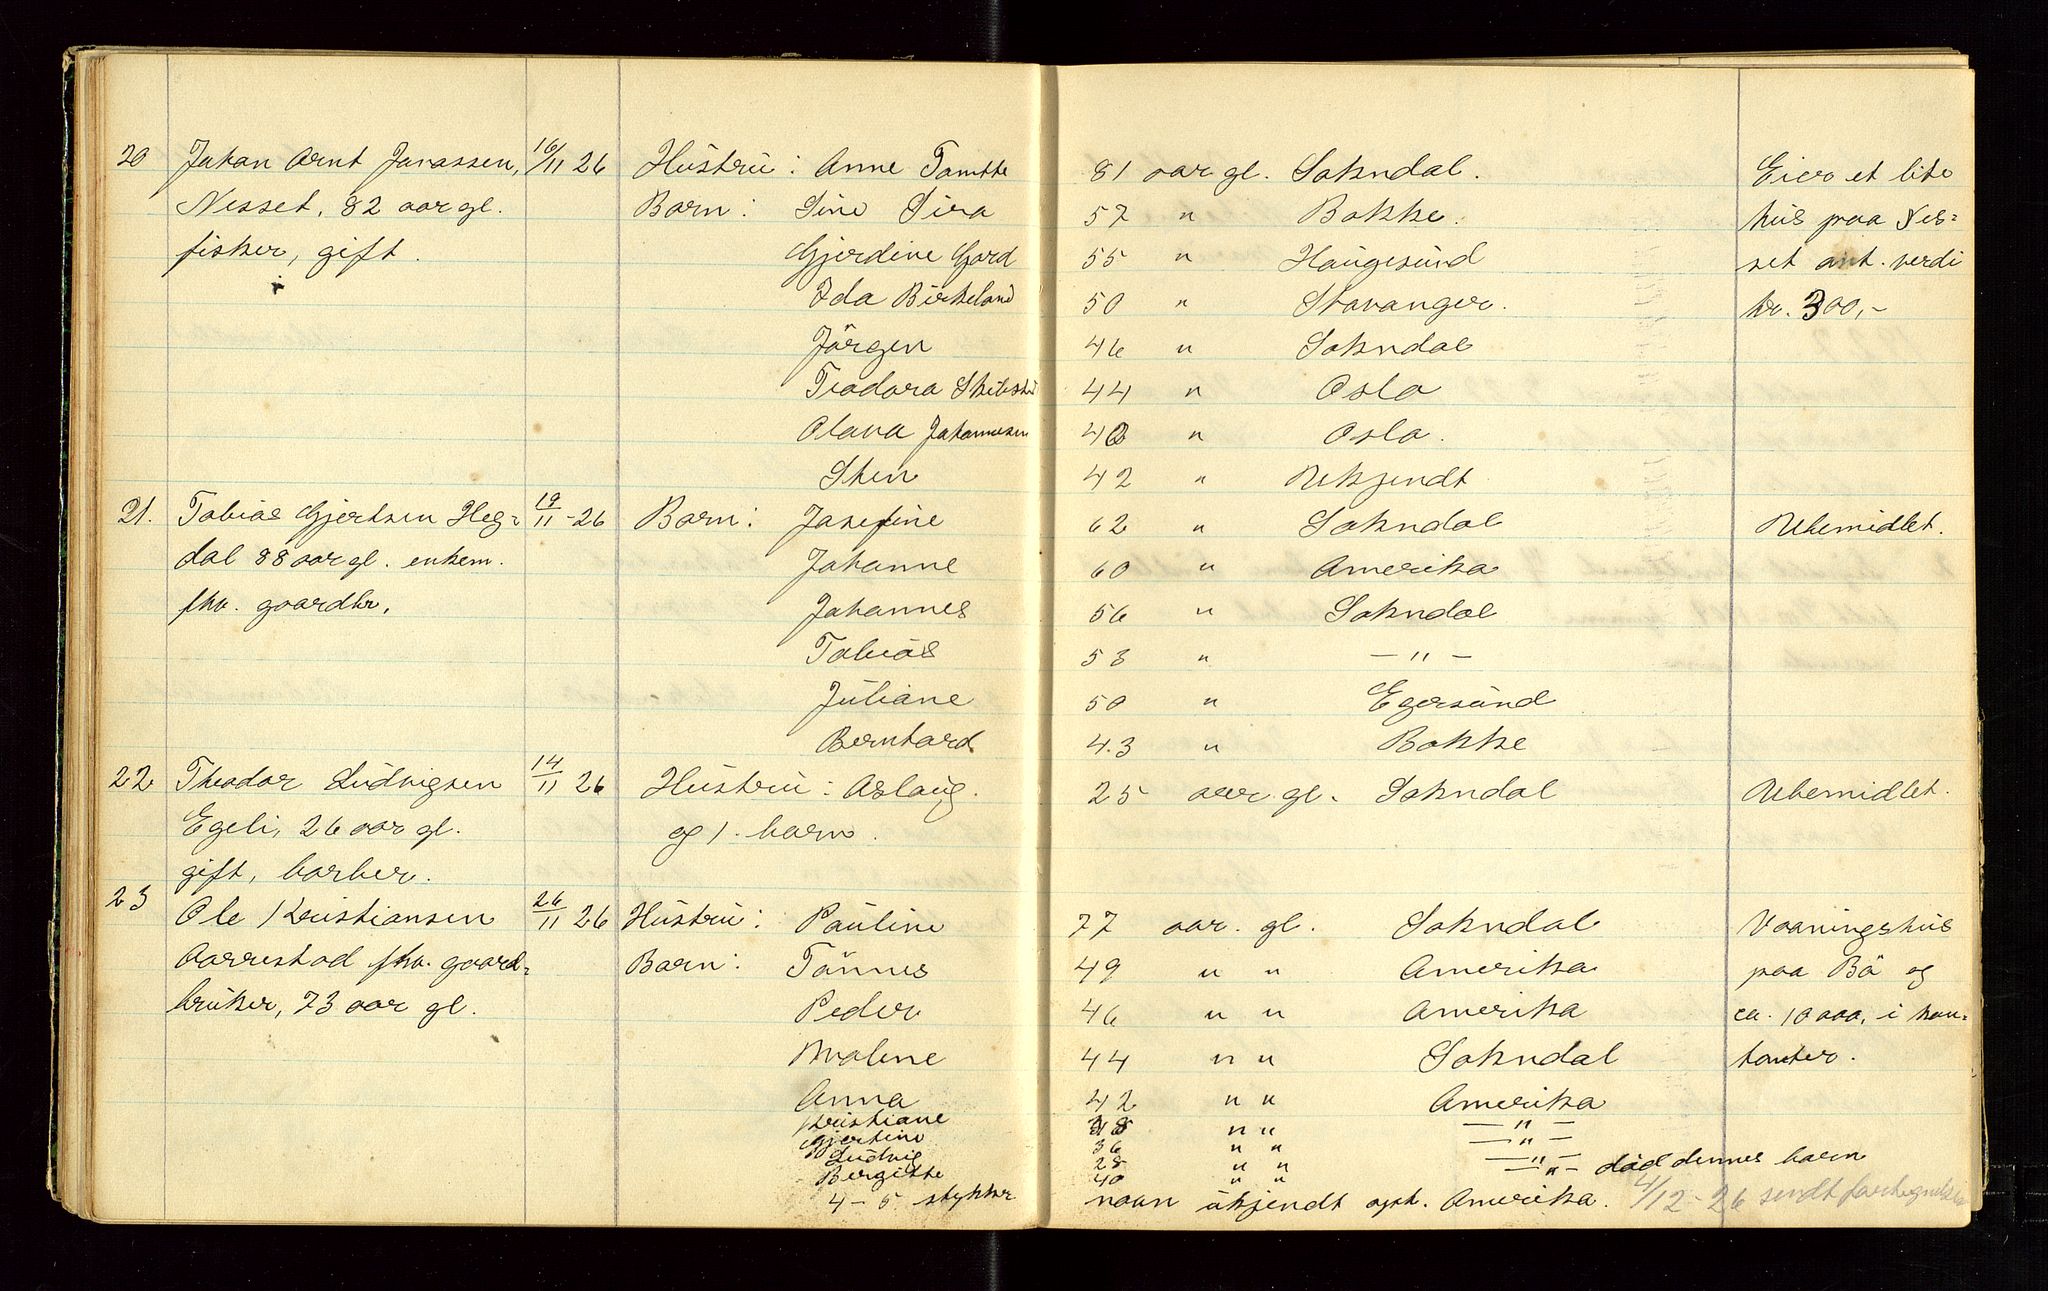 20 Johan Arnt Jonassen, 16/11 26 Hustru : Anne Tomtte 81 aar gl. Sokndal. Eier et lite
Nesset, 82 aar gl. Barn : Sine Sira 57 " Bakke. hus paa Nes=
fisker, gift. Gjerdine Gard 55 " Haugesund set ant. verdi
Ida Birkeland 50 " Stavanger. kr. 300,-
Jörgen 46 " Sokndal
Teodora 44 " Oslo
Olava Johannesen 40 " Oslo.
Sten 42 " Ukjendt
21. Tobias Gjertsen Heg= 19/11 - 26 Barn : Josefine 62 " Sokndal Ubemidlet.
dal 88 aar gl. enkem. Johanne 60 " Amerika
fhv. gaardbr. Johannes 56 " Sokndal
Tobias 53 " — " —
Juliane 50 " Egersund
Berntard 43 " Bakke
22 Theodor Ludvigsen 14/11 26 Hustru : Aslaug. 25 aar gl. Sokndal Ubemidlet.
Egeli, 26 aar gl. og 1. barn.
gift, barber.
23 Ole Kristiansen 26/11 26 Hustru : Pauline 77 aar. gl. Sokndal Vaaningshus
Aarrestad fhv. gaard= Barn : Tönnes 49 " " Amerika paa Bö og
bruker, 73 aar gl. Peder 46 " " Amerika ca. 10 000, i kon=
Malene 44 " " Sokndal tanter.
Anna 42 " " Amerika
Kristiane 38 " " — " —
Gjertine 36 " " — " —
Ludvig 28 " " — " —
Birgitte 40 " " — " — död dennes barn
4 - 5 stykker navn ukjendt opt. Amerika. 4/12 - 26 sendt fortegnelse